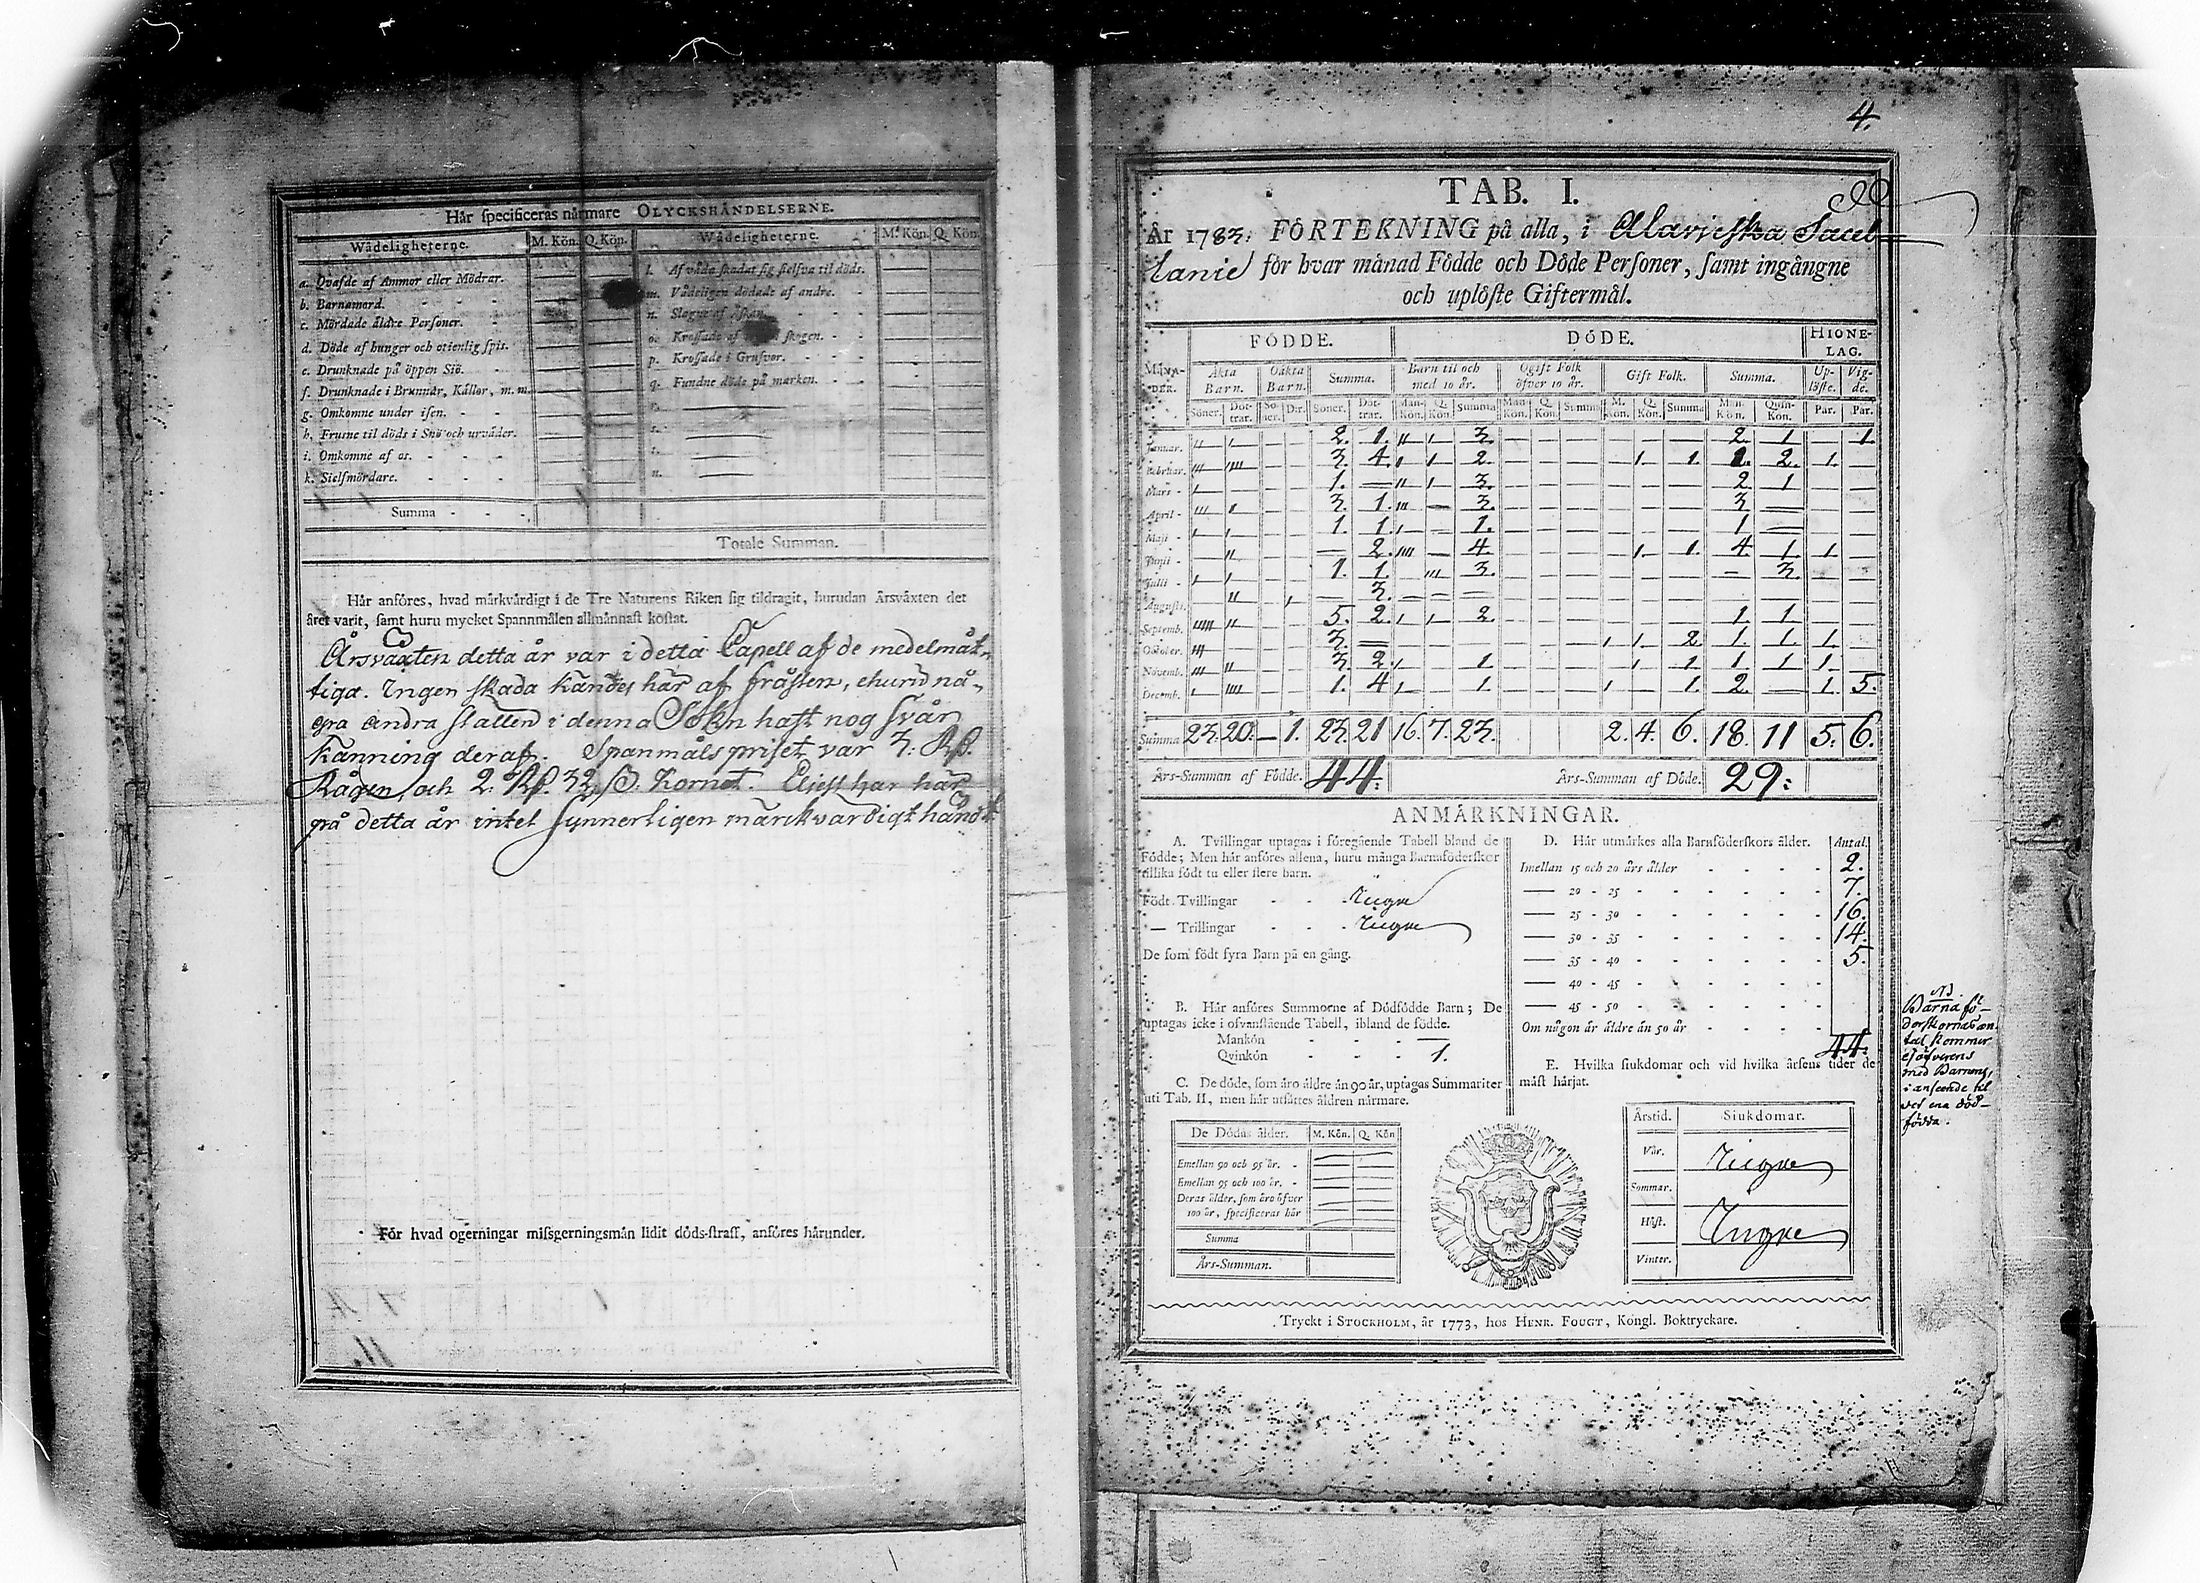 Hår specificeras nårmare OLYCKSHÅNDELSERNE.
Wådeligheterne. M. Kön. Q. Kön. Wådeligheterne. M. Kön. Q. Kön.
a. Qvafde af Ammor eller Mödrar.
b. Barnamord.
c. Mördade åldre Personer.
d. Döde af hunger och otienlig spis.
e. Drunknade på öppen Siö.
f. Drunknade i Brunnår, Kållor, m. m.
g. Omkomne under isen.
h. Frusne til döds i Snö och urvåder.
i. Omkomne af os.
k. Sielfmördare.
Summa
l. Af våda skadat sig sielfva til döds.
m. Vådeligen dödade af andre.
n. Slagne af Åskan.
o. Krossade af skogen.
p. Krossade i Grufvor.
q. Fundne döde på marken.
r.
s.
t.
u.
Totale Summan.
Hår anföres, hvad mårkvårdigt i de Tre Naturens Riken sig tildragit, hurudan Årsvåxten det
året varit, samt huru mycket Spannmålen allmånnast kostat.
Årsväxten detta år var i detta Capell af de medelmåt-
tiga. Ingen skada kändes här af frosten, ehuru nå-
gra andra ställen i denna Sokn haft nog svår
känning deraf. Spanmåls priset var 3. Rß.
Rågen, och 2. Rß. 32 ß. Kornet. Eljest har här
på detta år intet synnerligen märckvärdigt händt
För hvad ogerningar missgerningsmån lidit döds-straff, anföres hårunder.
4.
TAB. I.
År 1783. FÖRTEKNING på alla, i Alavieska Sacel-
lanie för hvar månad Födde och Döde Personer, samt ingångne
och uplöste Giftermål.
FÖDDE. DÖDE. HIONE-
LAG.
MÅNA-
DER. Åkta
Barn. Oåkta
Barn. Summa. Barn til och
med 10 år. Ogift Folk
öfver 10 år. Gift Folk. Summa. Up-
löste. Vig-
de.
Söner. Döt-
trar. Sö-
ner. D:r. Söner. Döt-
trar. Man-
Kön. Q.
Kön. Summa Man
Kön. Q.
Kön. Summ M.
Kön. Q.
Kön. Summa Man
Kön. Quin-
Kön. Par. Par.
Januar. 〃 ı 2. 1. 〃 ı 3. 2. 1 1.
Februar. ııı ıııı 3. 4. ı ı 2. 1 1. 2. 1.
Mars ı 1. 〃 ı 3. 2 1
April ııı ı 3. 1. ııı 3. 3
Maji ı ı 1. 1. ı 1. 1
Junii ıı 2. ıııı 4. 1 1. 4 1. 1
Julii ı ı 1. 1. ııı 3. 3.
Augusti. ıı ı 3.
Septemb. ııııı ıı 5. 2. ı ı 2. 1 1
October. ııı 3. 1 1. 2 1. 1. 1.
Novemb. ııı ıı 3. 2. ı 1. 1 1. 1 1 1.
Decemb. ı ıııı 1. 4. ı 1. 1 1. 2. 1. 5.
Summa 23. 20. — 1. 23. 21 16. 7. 23. 2. 4. 6. 18. 11 5. 6.
Års-Summan af Födde. 44. Års-Summan af Döde. 29:
ANMÅRKNINGAR.
A. Tvillingar uptagas i föregående Tabell bland de
Födde; Men hår anföres allena, huru många Barnaföderskor
tillika födt tu eller flere barn.
Födt Tvillingar Inga
— Trillingar Inga
De som födt fyra Barn på en gång.
B. Hår anföres Summorne af Dödfödde Barn; De
uptagas icke i ofvanstående Tabell, ibland de födde.
Mankön —
Qvinkön 1.
C. De döde, som åro åldre ån 90 år, uptagas Summariter
uti Tab. II, men hår utsåttes åldren nårmare.
De Dödas ålder. M. Kön. Q. Kön
Emellan 90 och 95 år.
Emellan 95 och 100 år.
Deras ålder, som åro öfver
100 år, specificeras hår
Summa
Års-Summan.
D. Hår utmårkes alla Barnföderskors ålder. Antal.
Imellan 15 och 20 års ålder 2.
— 20 - 25 7.
— 25 - 30 16.
— 30 - 35 14.
— 35 - 40 5.
— 40 - 45
— 45 - 50
Om någon år åldre ån 50 år
44.
E. Hvilka siukdomar och vid hvilka årsens tider de
måst hårjat.
Årstid. Siukdomar.
Vår. Inga
Sommar.
Höst. Inga
Vinter.
NB.
Barnafö-
derskornas an-
tal kommer
ej öfverens
med Barnens,
i anseende til
det ena död-
födda.
Tryckt i STOCKHOLM, år 1773, hos HENR. FOUGT, Kongl. Boktryckare.